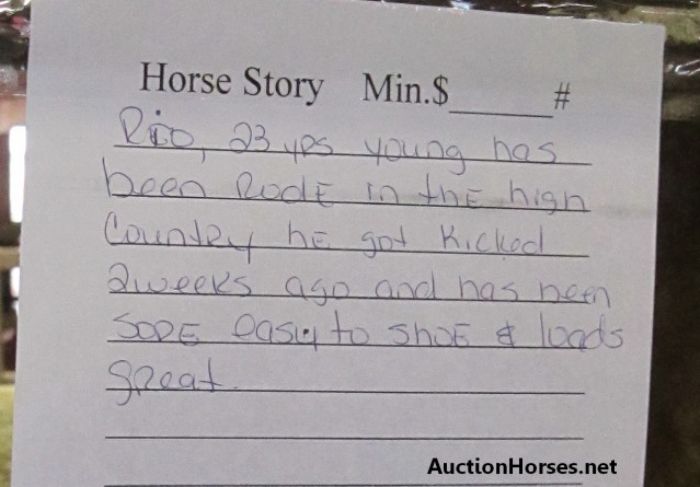 Horse Story Min.$______#
Rio, 23 yrs young has
been RodE in thE high
Country hE got Kicked
2weeks ago and has been
SORE easy to shoE & loads
great.
AuctionHorses.net